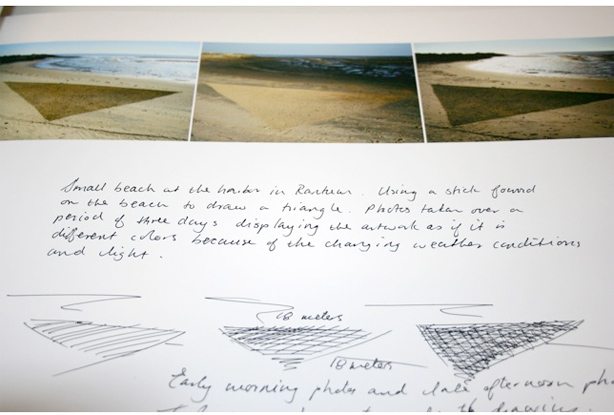 Small beach at the harbor in Rantum. Using a stick found
on the beach to draw a triangle. Photos taken over a
period of three days displaying the artwork as if it is
different colors because of the changing weather conditions
and light.
18 meters
18 meters
Early morning photos and late afternoon pho